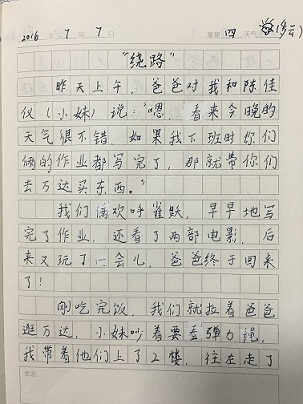 2016年7月7日 星期四 天气(多云)
"绕路"
昨天上午,爸爸对我和陈佳
仪(小妹)说:"嗯,看来今晚的
天气很不错,如果我下班时你们
俩的作业都写完了,那就带你们
去万达买东西。"
我们俩欢呼雀跃,早早地写
完了作业,还看了两部电影,后
来又玩了一会儿,爸爸终于回来
了!
刚吃完饭,我们就拉着爸爸
逛万达,小妹吵着要看弹力绳,
我带着他们上了2楼,往左走了